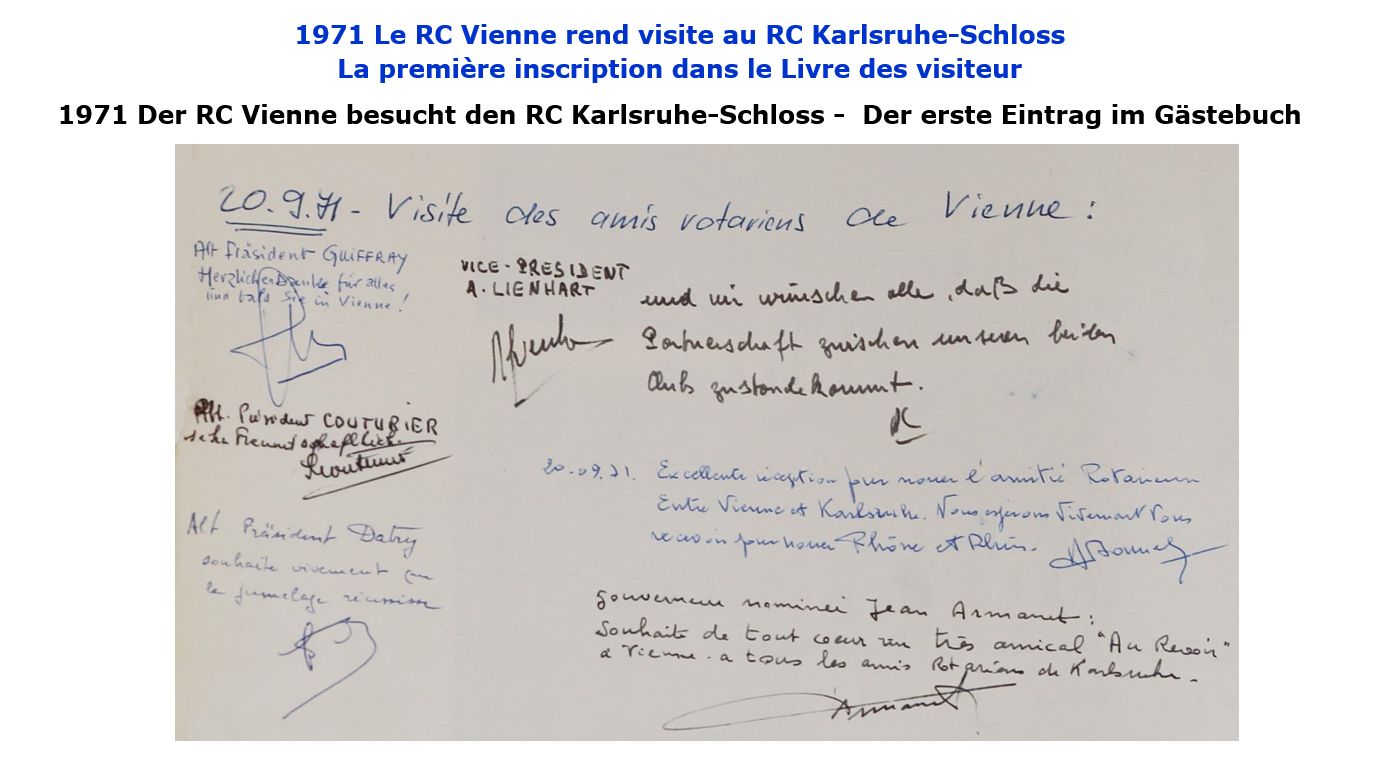 1971 Le RC Vienne rend visite au RC Karlsruhe-Schloss
La première inscription dans le Livre des visiteur
1971 Der RC Vienne besucht den RC Karlsruhe-Schloss - Der erste Eintrag im Gästebuch
20.9.71 - Visite des amis rotariens de Vienne :
Alt Präsident GUIFFRAY
Herzlichen Danke für alles
und bald Sie in Vienne !
VICE-PRESIDENT
A. LIENHART
und wir wünschen alle, daß die
Partnerschaft zwischen unseren beiden
Clubs zustandekommt.
Alt. Präsident COUTURIER
sehr Freundschaftlich.
Alt Präsident Datry
souhaite vivement que
le jumelage réussisse
20.09.71. Excellente réception pour nouer l'amitié Rotarienne
Entre Vienne et Karlsruhe. Nous espérons vivement vous
recevoir pour nouer Rhône et Rhin.
Gouverneur nominé Jean Armanet :
Souhaite de tout coeur un très amical "Au Revoir"
à Vienne - a tous les amis Rotariens de Karlsruhe -
Armanet